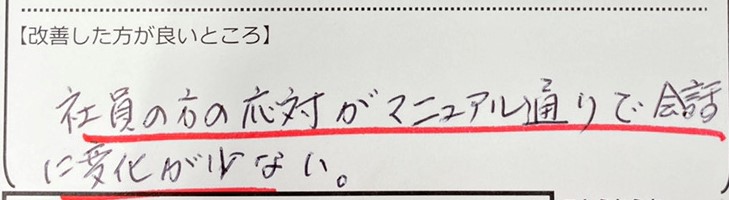 【改善した方が良いところ】
社員の方の応対がマニュアル通りで会話
に変化が少ない。